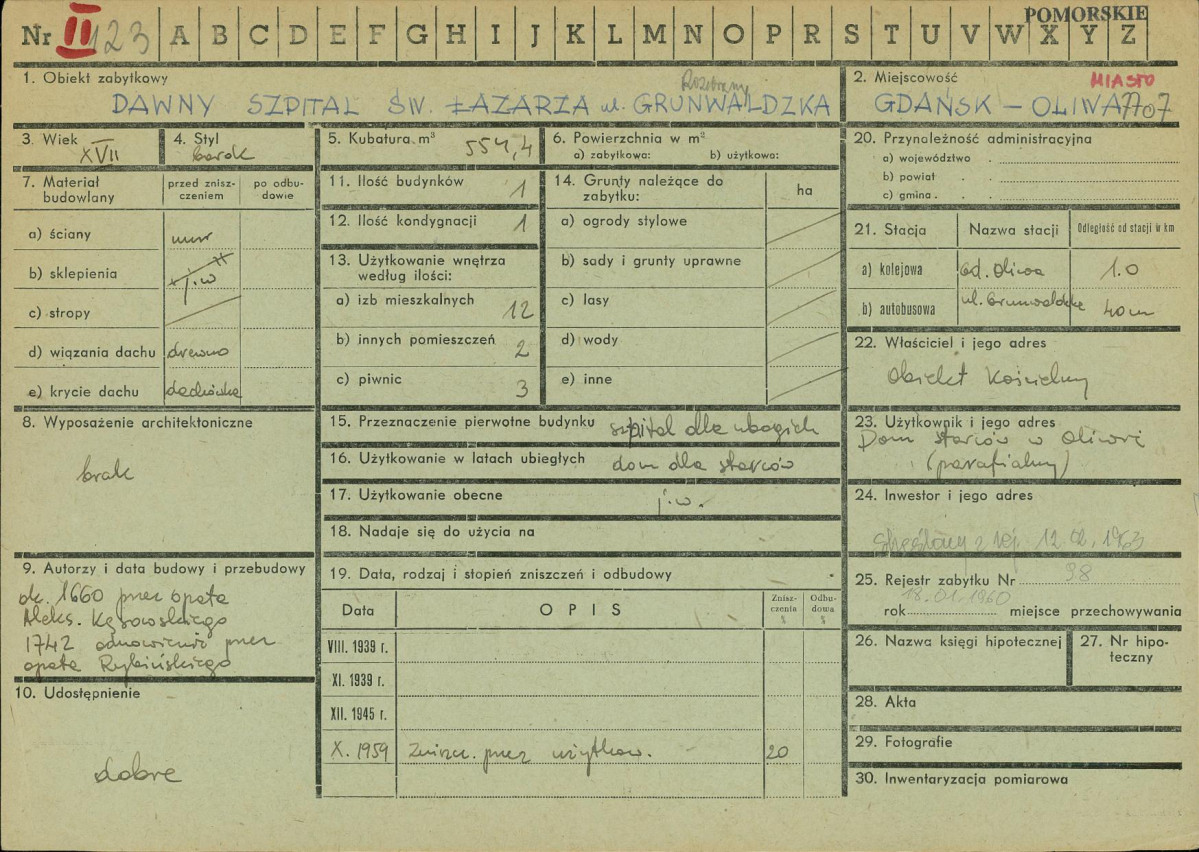 POMORSKIE
Nr II 123 A B C D E F G H I J K L M N O P R S T U V W X Y Z
1. Obiekt zabytkowy
Rozebrany
DAWNY SZPITAL ŚW. ŁAZARZA ul. GRUNWALDZKA
2. Miejscowość
MIASTO
GDAŃSK - OLIWA 7707
3. Wiek
XVII
4. Styl
barok
5. Kubatura m³
554,4
6. Powierzchnia w m²
a) zabytkowa: b) użytkowa:
7. Materiał budowlany
przed znisz-
czeniem
po odbu-
dowie
a) ściany mur
b) sklepienia j.w
c) stropy
d) wiązania dachu drewno
e) krycie dachu dachówka
8. Wyposażenie architektoniczne
brak
9. Autorzy i data budowy i przebudowy
ok. 1660 przez opata
Aleks. Kęsowskiego
1742 odnowienie przez
opata Rybińskiego
10. Udostępnienie
dobre
11. Ilość budynków 1
12. Ilość kondygnacji 1
13. Użytkowanie wnętrza
według ilości:
a) izb mieszkalnych 12
b) innych pomieszczeń 2
c) piwnic 3
14. Grunty należące do
zabytku:
ha
a) ogrody stylowe
b) sady i grunty uprawne
c) lasy
d) wody
e) inne
15. Przeznaczenie pierwotne budynku szpital dla ubogich
16. Użytkowanie w latach ubiegłych dom dla starców
17. Użytkowanie obecne j.w.
18. Nadaje się do użycia na
19. Data, rodzaj i stopień zniszczeń i odbudowy
Data OPIS
Znisz-
czenia
%
Odbu-
dowa
%
VIII. 1939 r.
XI. 1939 r.
XII. 1945 r.
X. 1959 Zniszcz. przez użytkow. 20
20. Przynależność administracyjna
a) województwo
b) powiat
c) gmina
21. Stacja Nazwa stacji Odległość od stacji w km
a) kolejowa Gd. Oliwa 1.0
b) autobusowa ul. Grunwaldzka 40 m
22. Właściciel i jego adres
Obiekt Kościelny
23. Użytkownik i jego adres
Dom starców w Oliwie
(parafialny)
24. Inwestor i jego adres
Skreślony z rej. 12.02.1963
25. Rejestr zabytku Nr 98
18.01.1960
rok miejsce przechowywania
26. Nazwa księgi hipotecznej
27. Nr hipo-
teczny
28. Akta
29. Fotografie
30. Inwentaryzacja pomiarowa